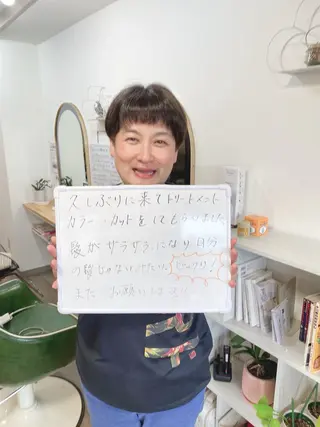 久しぶりに来てトリートメント
カラー・カットをしてもらいました
髪がサラサラになり自分
の髪じゃないみたい、びっくり!
また お願いします